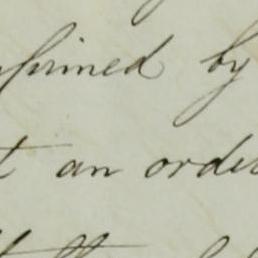 nfirmed by
t an order